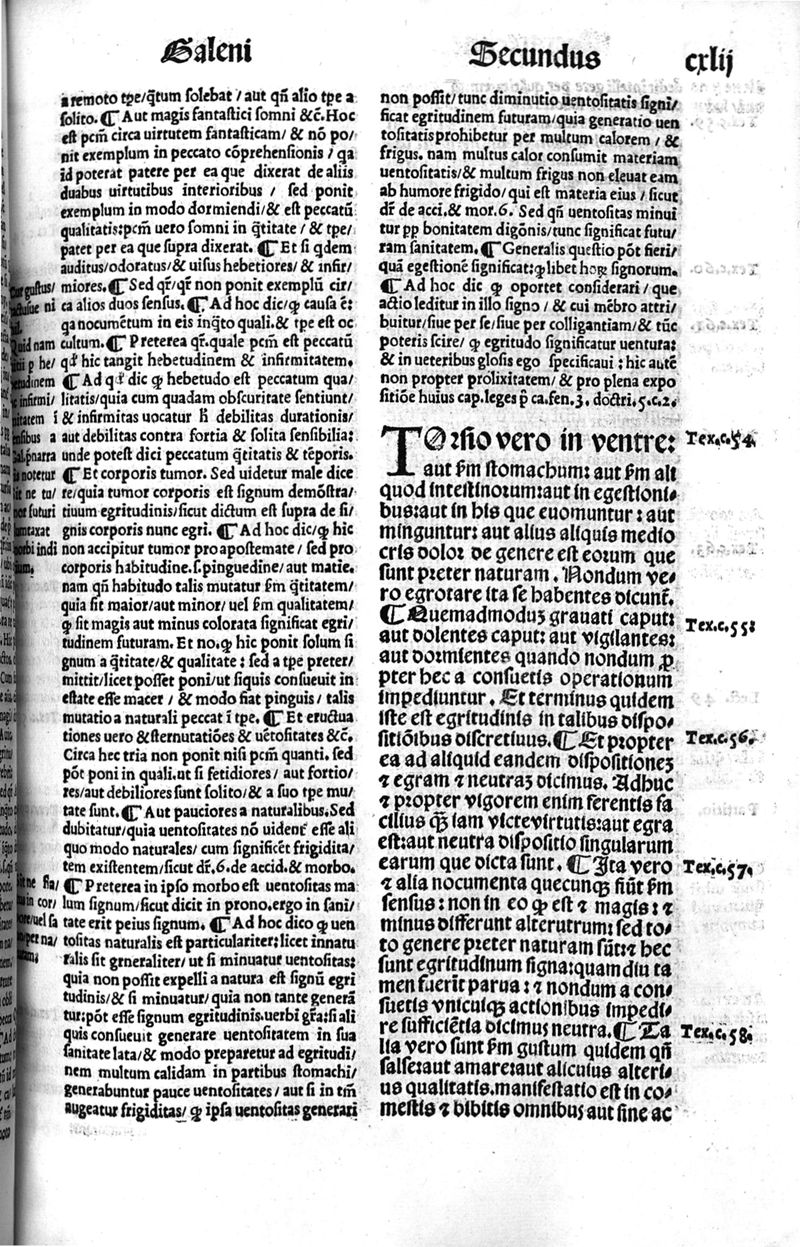 Galeni
Secundus
cxlij
a remoto tpe/q̄tum solebat / aut qñ alio tpe a
solito. ¶ Aut magis fantastici somni &c̄. Hoc
est pcm̄ circa uirtutem fantasticam/ & nō po/
nit exemplum in peccato cōprehensionis / qa
id poterat patere per ea que dixerat de aliis
duabus uirtutibus interioribus / sed ponit
exemplum in modo dormiendi/& est peccatū
qualitatis:pcm̄ uero somni in q̄titate / & tpe/
patet per ea que supra dixerat. ¶ Et si qdem
auditus/odoratus/& uisus hebetiores/ & infir/
miores. ¶ Sed qr̄/qr̄ non ponit exemplū cir/
ca alios duos sensus. ¶ Ad hoc dic/ꝙ causa ē:
qa nocumētum in eis inq̄to quali.& tpe est oc
cultum. ¶ Preterea qr̄.quale pcm̄ est peccatū
qđ hic tangit hebetudinem & infirmitatem.
¶ Ad qđ dic ꝙ hebetudo est peccatum qua/
litatis/quia cum quadam obscuritate sentiunt/
& infirmitas uocatur h̄ debilitas durationis/
aut debilitas contra fortia & solita sensibilia:
unde potest dici peccatum q̄titatis & tēporis.
¶ Et corporis tumor. Sed uidetur male dice
re/quia tumor corporis est signum demōstra/
tiuum egritudinis/sicut dictum est supra de si/
gnis corporis nunc egri. ¶ Ad hoc dic/ꝙ hic
non accipitur tumor pro apostemate / sed pro
corporis habitudine.s.pinguedine/aut macie.
nam qñ habitudo talis mutatur s̄m q̄titatem/
quia sit maior/aut minor/ uel s̄m qualitatem/
ꝙ sit magis aut minus colorata significat egri/
tudinem futuram. Et no.ꝙ hic ponit solum si
gnum a q̄titate/& qualitate : sed a tpe preter/
mittit/licet posset poni/ut siquis consueuit in
estate esse macer / & modo fiat pinguis / talis
mutatio a naturali peccat ī tpe. ¶ Et eructua
tiones uero &sternutatiōes & uētositates &c̄.
Circa hec tria non ponit nisi pcm̄ quanti. sed
pōt poni in quali.ut si fetidiores / aut fortio/
res/aut debiliores sunt solito/& a suo tpe mu/
tate sunt. ¶ Aut pauciores a naturalibus.Sed
dubitatur/quia uentositates nō uident̄ esse ali
quo modo naturales/ cum significēt frigidita/
tem existentem/sicut dr̄.6.de accid.& morbo.
¶ Preterea in ipso morbo est uentositas ma
lum signum/sicut dicit in prono.ergo in sani/
tate erit peius signum. ¶ Ad hoc dico ꝙ uen
tositas naturalis est particulariter:licet innatu
ralis sit gn̄eraliter/ ut si minuatur uentositas:
quia non possit expelli a natura est signū egri
tudinis/& si minuatur/quia non tante generā
tur:pōt esse signum egritudinis.uerbi gr̄a:si ali
quis consueuit generare uentositatem in sua
sanitate lata/& modo preparetur ad egritudi/
nem multum calidam in partibus stomachi/
generabuntur pauce uentositates / aut si in tm̄
augeatur frigiditas/ ꝙ ipsa uentositas generari
non possit/ tunc diminutio uentositatis signi/
ficat egritudinem futuram/quia generatio uen
tositatis prohibetur per multum calorem / &
frigus. nam multus calor consumit materiam
uentositatis/& multum frigus non eleuat eam
ab humore frigido/ qui est materia eius / sicut
dr̄ de acci.& mor.6. Sed qñ uentositas minui
tur pp̄ bonitatem digōnis/tunc significat futu/
ram sanitatem. ¶ Generalis questio pōt fieri/
quā egestionē significat:ꝙlibet hoꝝ signorum.
¶ Ad hoc dic ꝙ oportet considerari / que
actio leditur in illo signo / & cui mēbro attri/
buitur/siue per se/siue per colligantiam/& tūc
poteris scire/ ꝙ egritudo significatur uentura:
& in ueteribus glosis ego specificaui : hic autē
non propter prolixitatem/ & pro plena expo
sitiōe huius cap.leges p̄ ca.fen.3. doctri.5.c.2.
TOrsio vero in ventre:
aut s̄m stomachum: aut s̄m ali
quod intestinorum:aut in egestioni-
bus:aut in his que euomuntur : aut
minguntur: aut alius aliquis medio
cris dolor de genere est eorum que
sunt preter naturam . Nondum ve-
ro egrotare ita se habentes dicunt̄.
¶ Quemadmoduʒ grauati caput:
aut dolentes caput: aut vigilantes:
aut dormientes quando nondum ꝓ
pter hec a consuetis operationum
impediuntur . Et terminus quidem
iste est egritudinis in talibus dispo-
sitiōibus discretiuus. ¶ Et propter
ea ad aliquid eandem dispositioneʒ
⁊ egram ⁊ neutraʒ dicimus. Adhuc
⁊ propter vigorem enim ferentis fa
cilius q̄ʒ iam victevirtutis:aut egra
est:aut neutra dispositio singularum
earum que dicta sunt . ¶ Ita vero
⁊ alia nocumenta quecunqʒ fiūt s̄m
sensus: non in eo ꝙ est ⁊ magis: ⁊
minus differunt alterutrum: sed to-
to genere preter naturam sūt:⁊ hec
sunt egritudinum signa:quamdiu ta
men fuerīt parua : ⁊ nondum a con-
suetis vnicuiqʒ actionibus impedi-
re sufficiētia dicimus neutra. ¶ Ta
lia vero sunt s̄m gustum quidem qñ
salse:aut amare:aut alicuius alteri-
us qualitatis.manifestatio est in co-
mestis ⁊ bibitis omnibus aut sine ac
Tex.c.54.
Tex.c.55:
Tex.c.56.
Tex.c.57.
Tex.c.58.